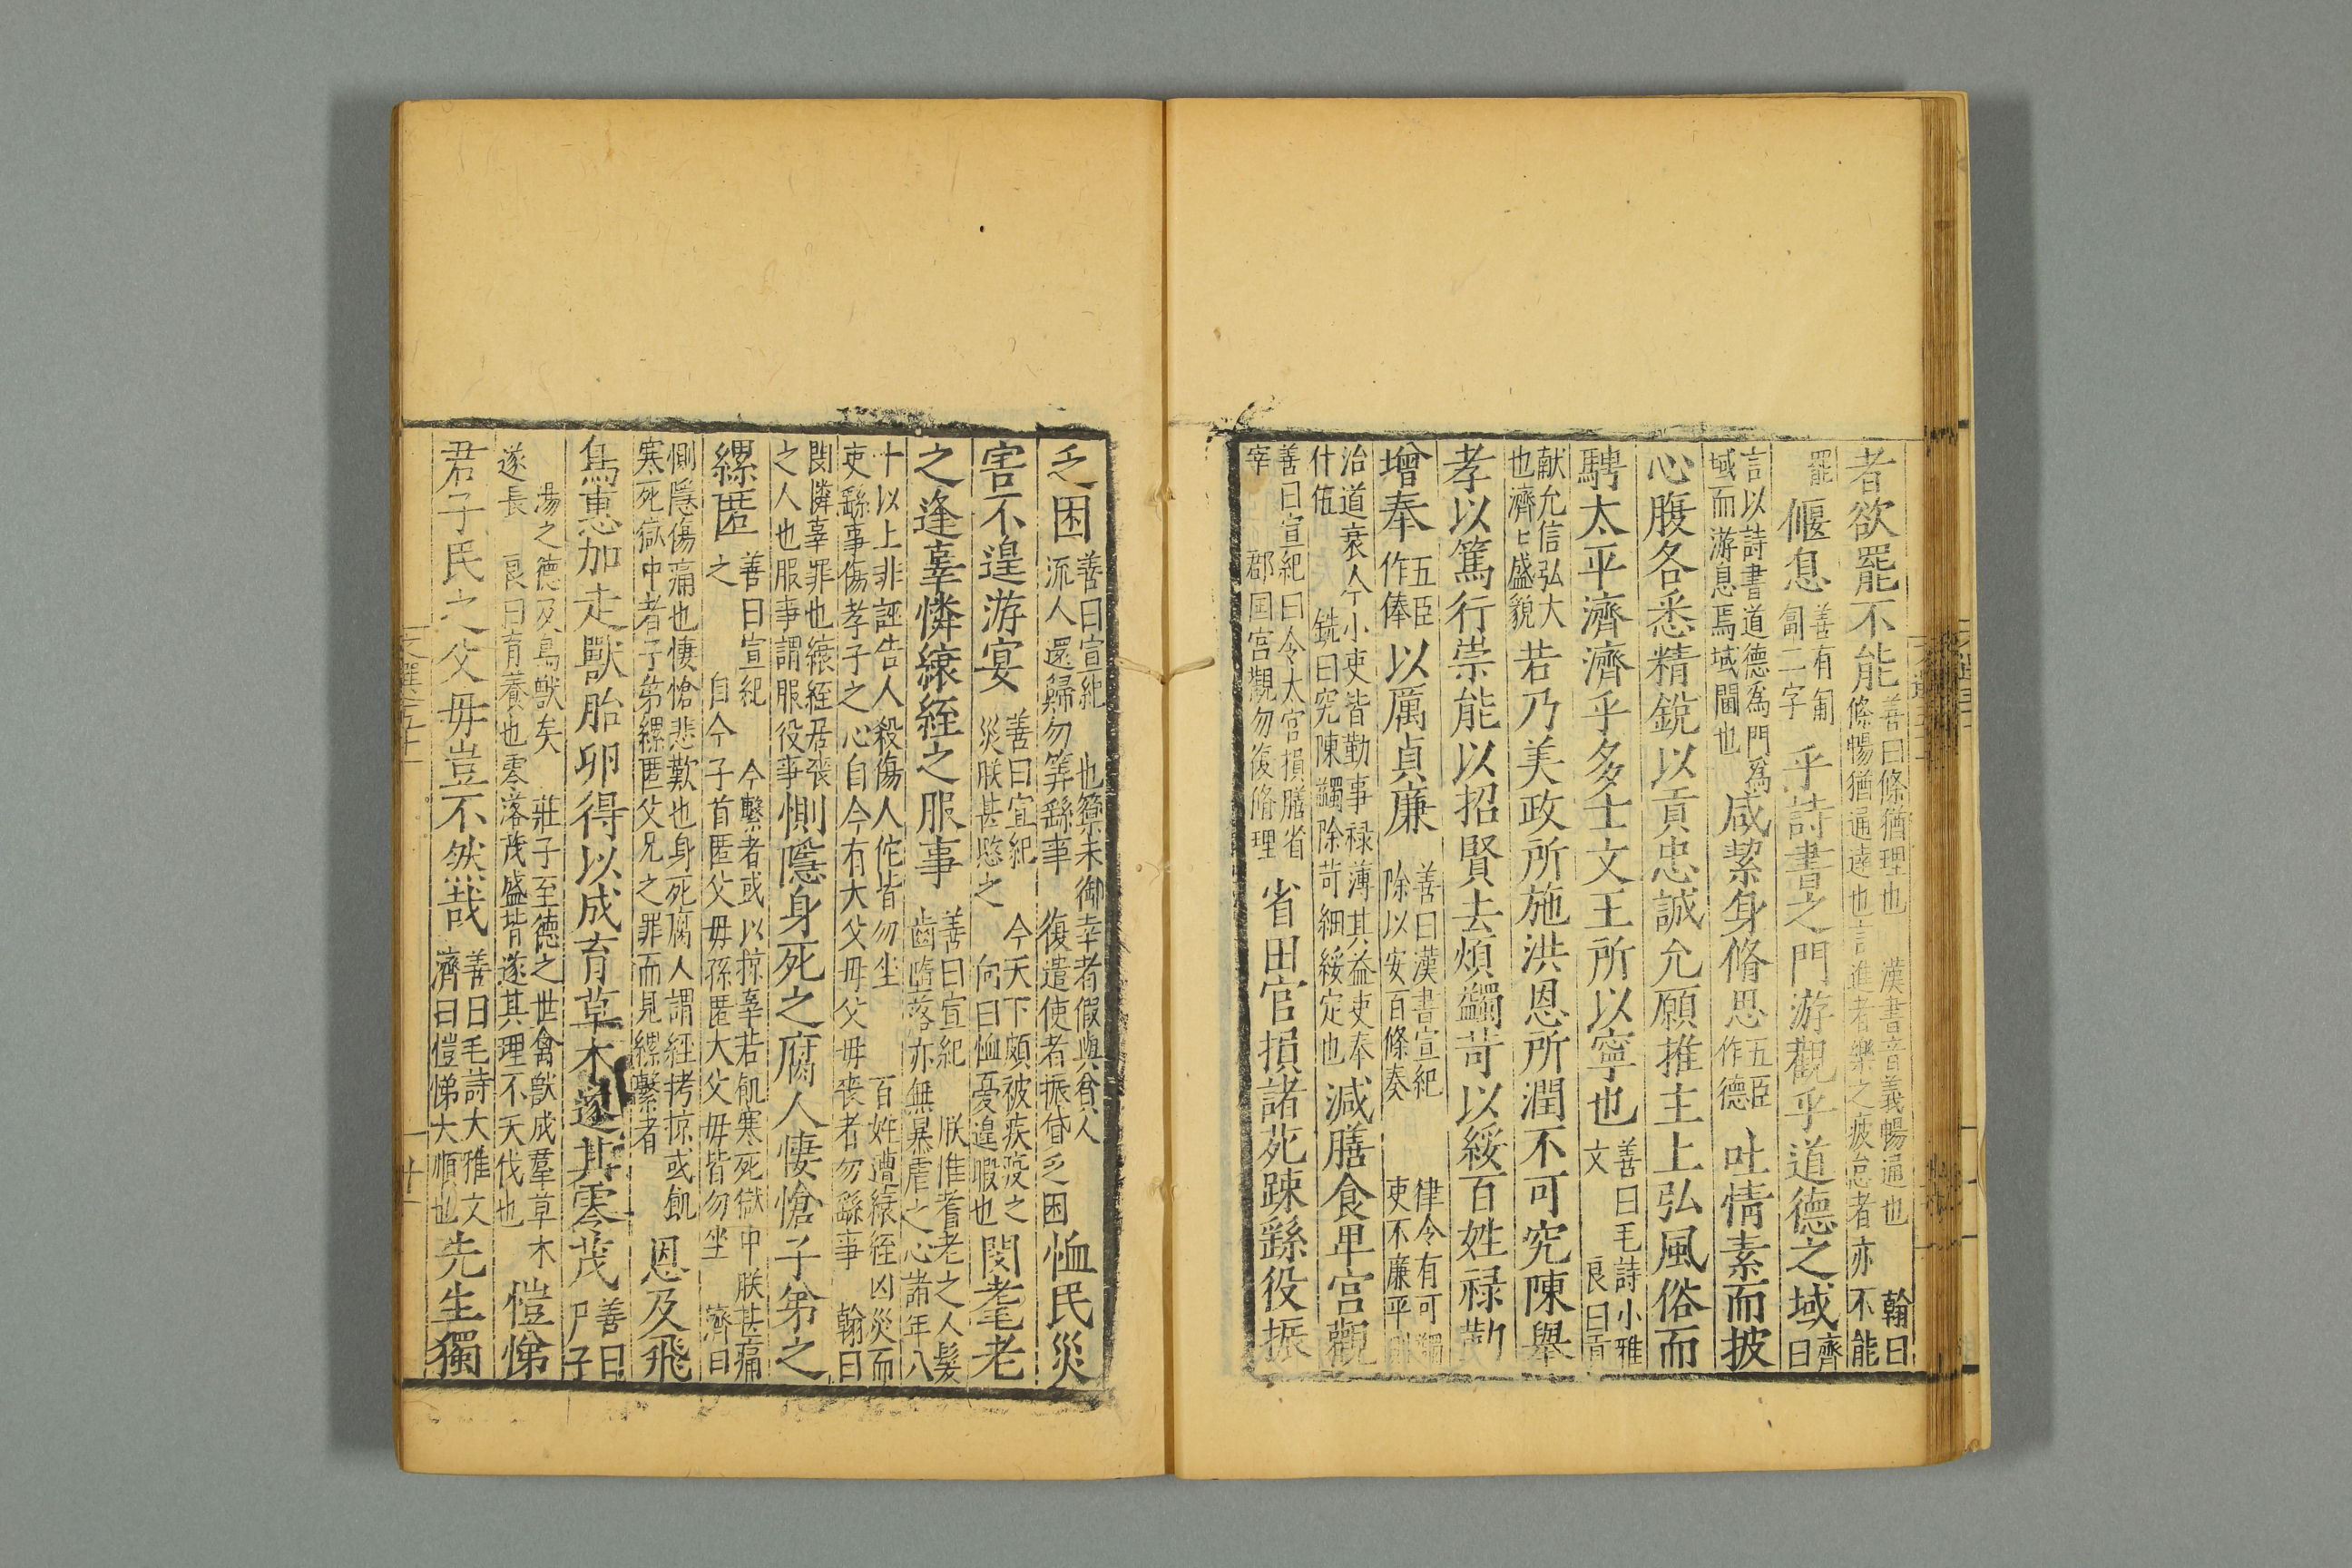 者欲罷不能善曰條猶理也 漢書音義暢通也 翰曰條暢猶通達也言進者樂之疲怠者亦不能
罷偃息善有匍匐二字乎詩書之門游觀乎道德之域濟曰
言以詩書道德爲門爲域而游息焉域閫也咸絜身脩思五臣作德吐情素而披
心腹各悉精銳以貢忠誠允願推主上弘風俗而
騁太平濟濟乎多士文王所以寧也善曰毛詩小雅文 良曰貢
献允信弘大也濟〻盛貌若乃美政所施洪恩所潤不可究陳舉
孝以篤行崇能以招賢去煩蠲苛以綏百姓禄勤
增奉五臣作俸以厲貞廉善曰漢書宣紀除以安百條奏 律令有可蠲吏不廉平則
治道衰今小吏皆勤事禄薄其益吏奉什伍 銑曰究陳蠲除苛細綏定也減膳食卑宫觀
善曰宣紀曰令太官損膳省宰 郡国宫觀勿復脩理省田官損諸苑踈繇役振
乏困善曰宣紀 也籞未御幸者假與貧人流人還歸勿筭繇事 復遣使者振貸乏困恤民災
害不遑游宴善曰宣紀 今天下頗被疾疫之災朕甚愍之 向曰恤憂遑暇也閔耄老
之逢辜憐縗絰之服事善曰宣紀 朕惟耆老之人髮齒墮落亦無暴虐之心諸年八
十以上非誣告人殺傷人佗皆勿坐 百姓遭縗絰凶災而吏繇事傷孝子之心自今有大父母父母喪者勿繇事 翰曰
閔憐辜罪也縗絰居喪之人也服事謂服役事惻隱身死之腐人悽愴子弟之
縲匿善曰宣紀 今繫者或以掠辜若飢寒死獄中朕甚痛之 自今子首匿父母孫匿大父母皆勿坐 濟曰
惻隱傷痛也悽愴悲歎也身死腐人謂經拷掠或飢寒死獄中者子弟縲匿父兄之罪而見縲繫者恩及飛
鳥惠加走獸胎卵得以成育草木遂其零茂善曰尸子
湯之德及鳥獸矣 莊子至德之世禽獸成羣草木遂長 良曰育養也零落茂盛皆遂其理不夭伐也愷悌
君子民之父母豈不然哉善曰毛詩大雅文濟曰愷悌大順也先生獨